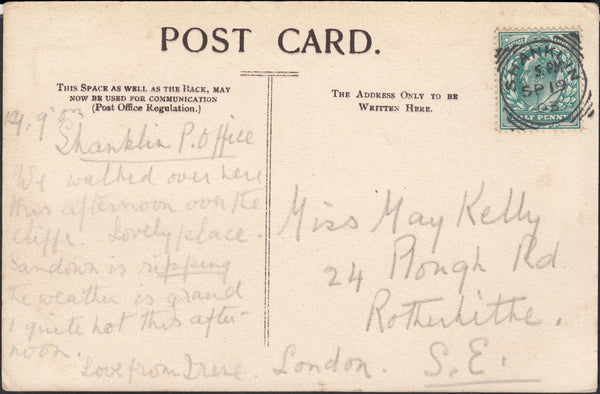 POST CARD.
THIS SPACE AS WELL AS THE BACK, MAY
NOW BE USED FOR COMMUNICATION
(Post Office Regulation.)
THE ADDRESS ONLY TO BE
WRITTEN HERE.
SHANKLIN
5 PM
SP 19
HALF PENNY
Shanklin P. Office
We walked over here
this afternoon over the
cliffs. Lovely place.
Sandown is ripping
the weather is grand
& quite hot this after-
noon.
Love from Irene.
Miss May Kelly
24 Plough Rd
Rotherhithe.
London. S.E.